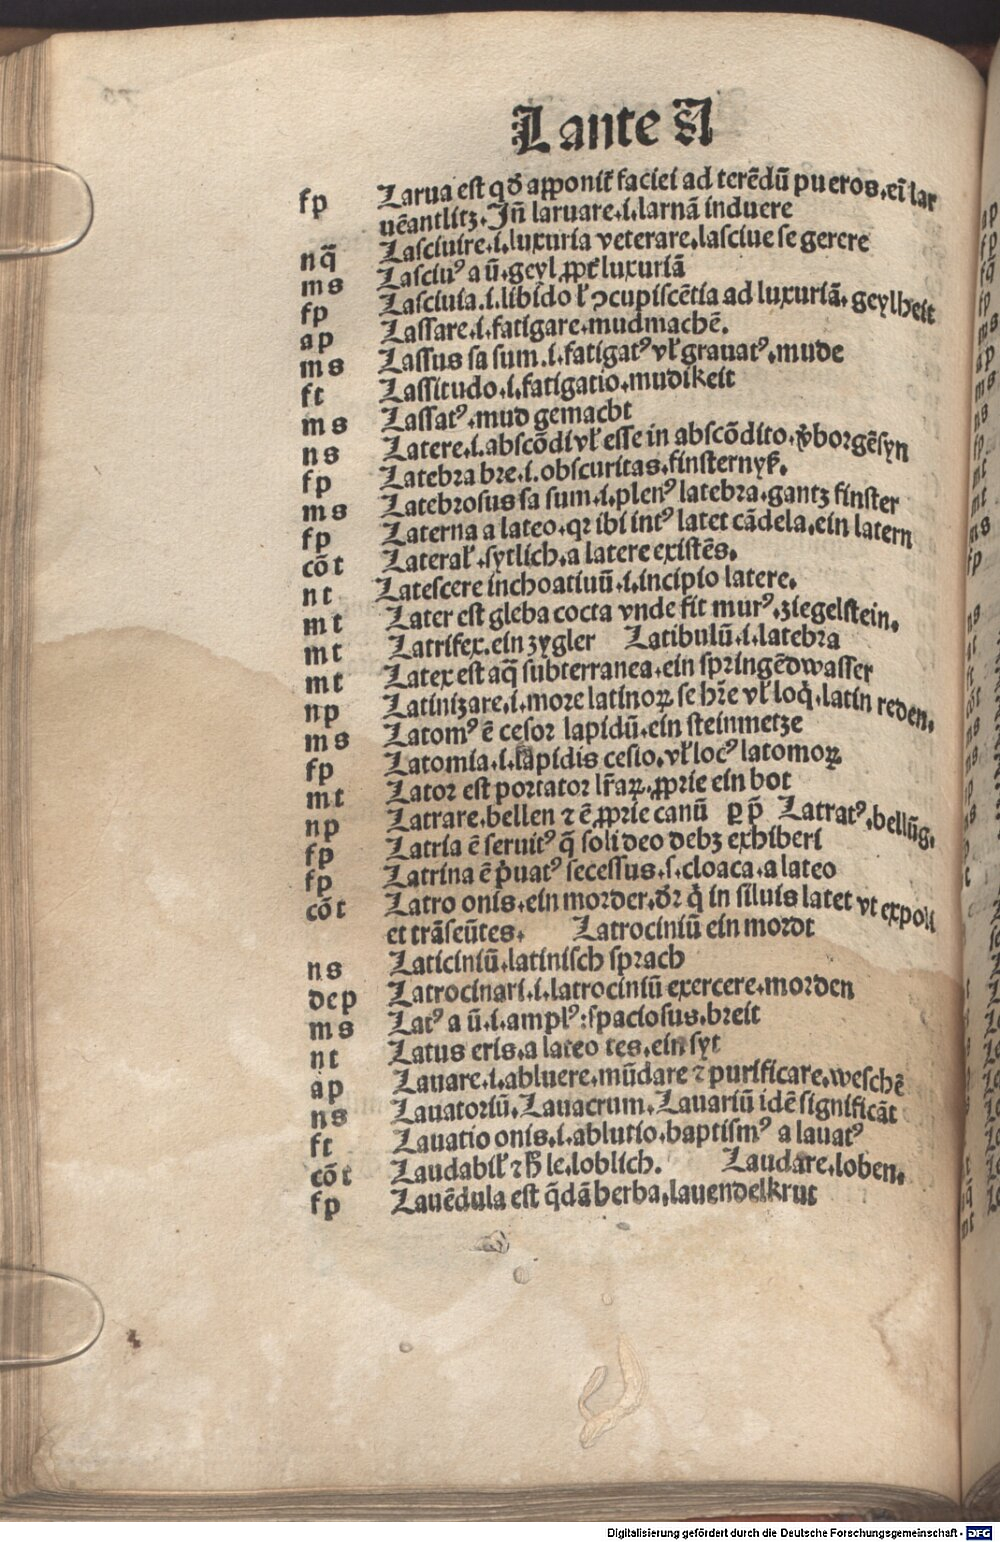 L ante S
fp Larua est qď apponit᷑ faciei ad terēdū pueros, ein̄ lar
uēantlitz. Jn̄ laruare .i. larnā induere
nq̄ Lasciuire .i. luxuria veterare, lasciue se gerere
ms Lasciuꝰ a ū. geyl ꝓpt᷑ luxuriā
fp Lasciuia .i. libido ł ↄcupiscētia ad luxuriā. geylheit
ap Lassare .i. fatigare. mudmachē.
ms Lassus sa sum .i. fatigatꝰ vł grauatꝰ. mude
ft Lassitudo .i. fatigatio. mudikeit
ms Lassatꝰ. mud gemacht
ns Latere .i. abscōdi vł esse in abscōdito. v̓borgēsyn
fp Latebra bre .i. obscuritas. finsternyß.
ms Latebrosus sa sum .i. plenꝰ latebra. gantz finster
fp Laterna a lateo. qꝛ ibi intꝰ latet cādela, ein latern
cōt Laterał. sytlich. a latere existēs.
nt Latescere inchoatiuū .i. incipio latere.
mt Later est gleba cocta vnde fit murꝰ. ziegelstein.
mt Latrifex. ein zygler Latibulū .i. latebra
mt Latex est aq̄ subterranea. ein springēdwasser
np Latinizare .i. more latinoꝝ se hr̄e vł loq̇. latin reden.
ms Latomꝰ ē cesor lapidū. ein steinmetze
fp Latomia .i. lapidis cesio. vł locꝰ latomoꝝ
mt Lator est portator lr̄aꝝ. ꝓprie ein bot
np Latrare. bellen ⁊ ē ꝓprie canū ꝑ p̄ Latratꝰ. bellūg.
fp Latria ē seruitꝰ q̄ soli deo debꝫ exhiberi
fp Latrina ē p̓uatꝰ secessus .s. cloaca. a lateo
cōt Latro onis. ein morder. dr̄ q̇ in siluis latet vt expoli
et trāseūtes. Latrociniū ein mordt
ns Laticiniū. latinisch sprach
dep Latrocinari .i. latrociniū exercere. morden
ms Latꝰ a ū .i. amplꝰ: spaciosus. breit
nt Latus eris. a lateo tes. ein syt
ap Lauare .i. abluere. mūdare ⁊ purificare. weschē
ns Lauatoriū. Lauacrum. Lauariū idē significāt
ft Lauatio onis .i. ablutio. baptismꝰ a lauatꝰ
cōt Laudabił ⁊ ħ le. loblich. Laudare. loben.
fp Lauēdula est q̄dā herba. lauendelkrut
Digitalisierung gefördert durch die Deutsche Forschungsgemeinschaft - DFG